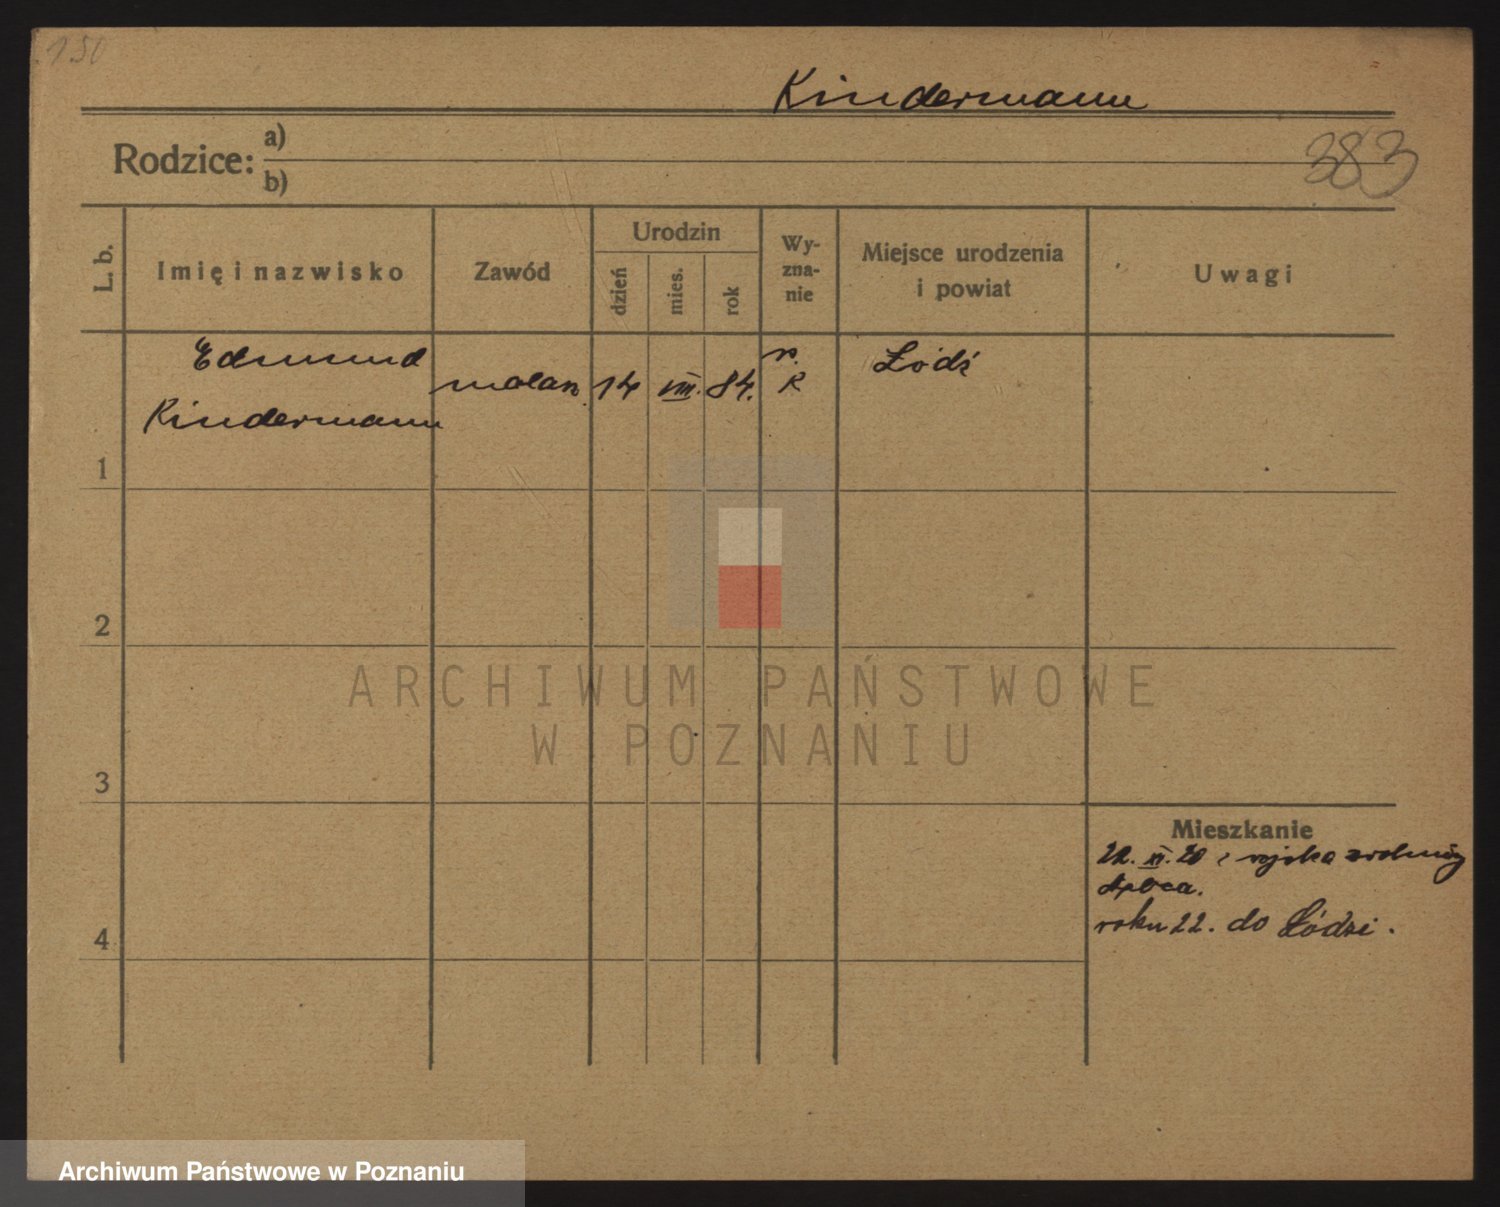 150
Kindermann
Rodzice: a)
b)
383
L. b.
Imię i nazwisko
Zawód
Urodzin
dzień
mies.
rok
Wy-
zna-
nie
Miejsce urodzenia
i powiat
Uwagi
Edmund
Kindermann
malarz
14
VIII.
84.
r.
K
Łódź
1
2
3
4
Mieszkanie
22. XI. 20 z wojska
roku 22. do Łódzi.
ARCHIWUM PAŃSTWOWE
W POZNANIU
Archiwum Państwowe w Poznaniu